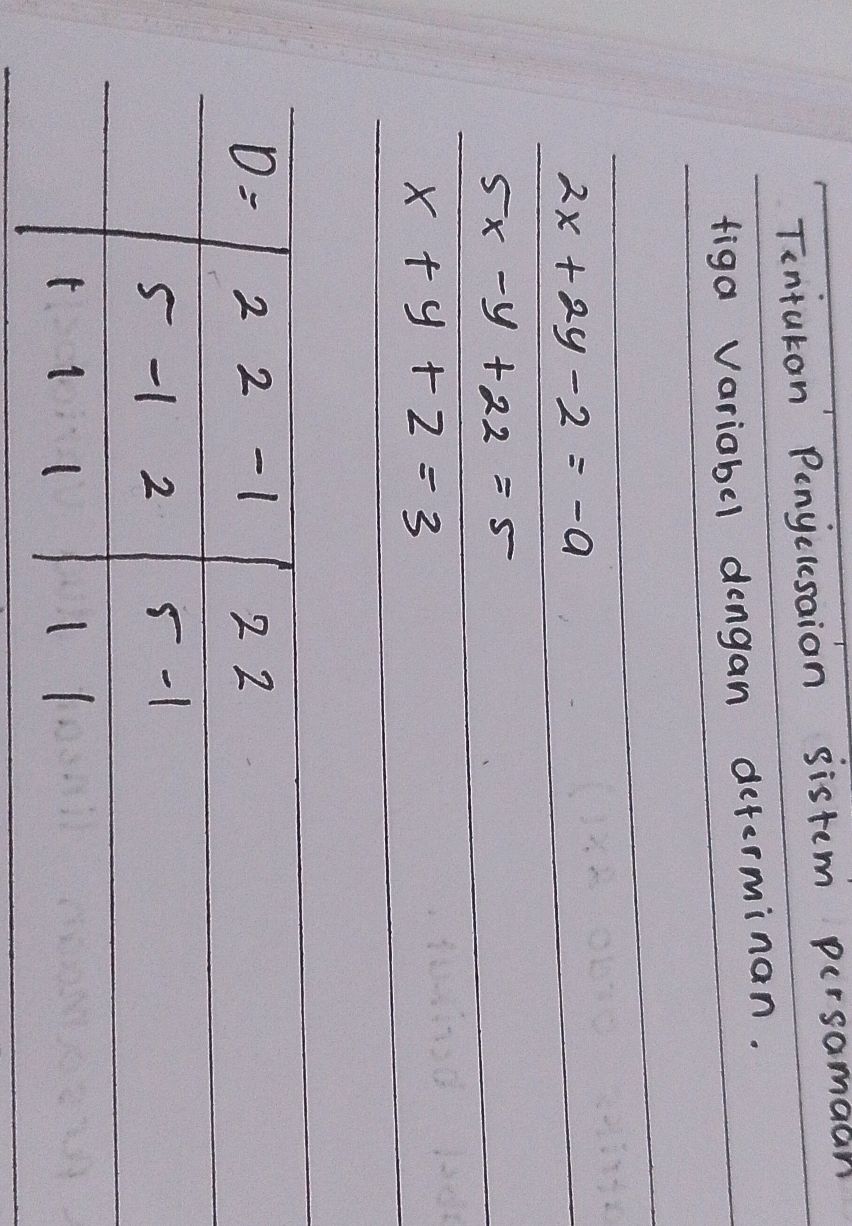 Tentukan Penyelesaian sistem persamaan
tiga Variabel dengan determinan.
2x + 2y - 2 = -9
5x - y + 22 = 5
x + y + z = 3
D = | 2 2 -1 | 2 2
| 5 -1 2 | 5 -1
| 1 1 1 | 1 1